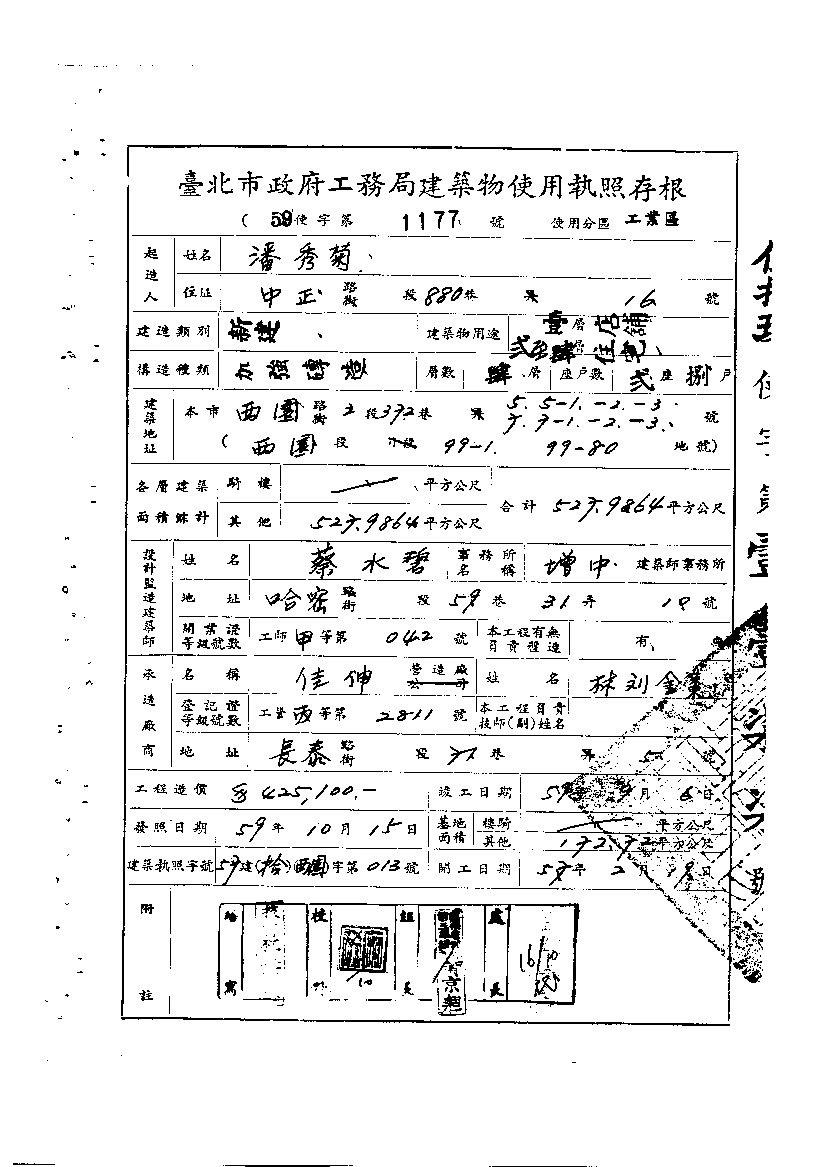 臺北市政府工務局建築物使用執照存根
(59使字第 1177 號 使用分區 工業區
起造人 姓名 潘秀菊
住址 中正 路街 段 880巷 弄 16 號
建造類別 新建 建築物用途 壹層店舖 貳至肆層住宅
構造種類 加強磚造 層數 肆層 座戶數 貳座捌戶
建築地址 本市 西園 路街 2段372巷 弄 5. 5-1. -2. -3. 7. 7-1. -2. -3. 號
(西園 段 小段 99-1. 99-80 地號)
各層建築面積綜計 騎樓 平方公尺 合計 527.9864平方公尺
其他 527.9864平方公尺
設計監造建築師 姓名 蔡水碧 事務所名稱 增中 建築師事務所
地址 哈密 路街 段 59巷 31弄 18號
開業證等級號數 工師甲等第 042 號 本工程有無負責程造 有
承造廠商 名稱 佳伸 營造廠公司 姓名 林刘金葉
登記證等級號數 工營丙等第 2811 號 本工程負責技師(副)姓名
地址 長泰 路街 段 巷 弄 5 號
工程造價 425,100.- 竣工日期 59年 月 6日
發照日期 59年10月15日 基地面積 樓騎 平方公尺
其他 172.92平方公尺
建築執照字號 59建(拾)(西園)字第013號 開工日期 59年2月18日
附註 繕寫 校對 組長 處長 16/10